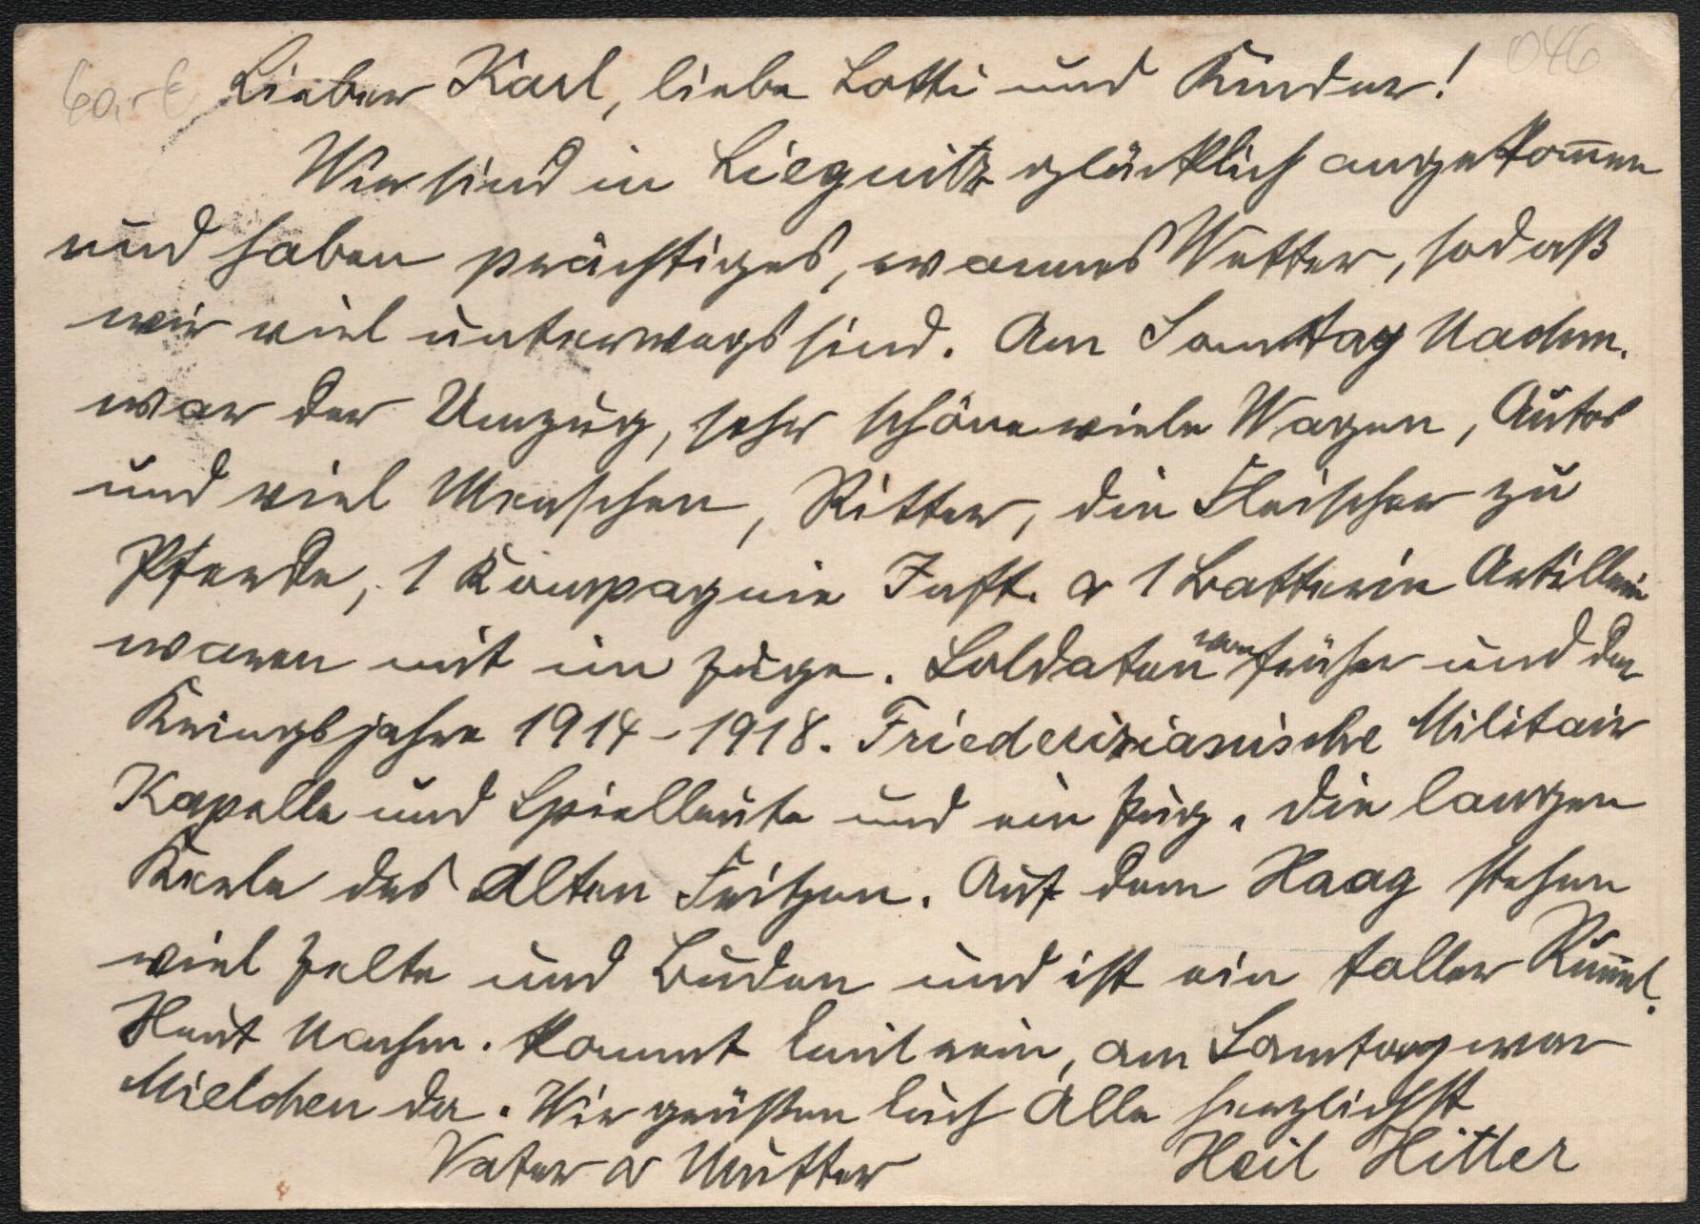 046
Lieber Karl, liebe Lotti und Kinder!
Wir sind in Liegnitz glücklich angekom̅en
und haben prächtiges, warmes Wetter, sodaß
wir viel unterwegs sind. Am Sonntag Nachm.
war der Umzug, sehr schöne viele Wagen, Autos
und viel Menschen, Ritter, die Fleischer zu
Pferde, 1 Kompagnie Inft. & 1 Batterie Artillerie
waren mit im Zuge. Soldaten von früher und der
Kriegsjahre 1914-1918. Friederizianische Militair
Kapelle und Spielleute und ein Zug. Die langen
Kerle des Alten Fritzen. Auf dem Haag stehen
viel Zelte und Buden und ist ein toller Rum̅el.
Heut Nachm. kommt Emil rein, am Samstag war
Mielchen da. Wir grüßen Euch Alle herzlichst
Vater & Mutter Heil Hitler